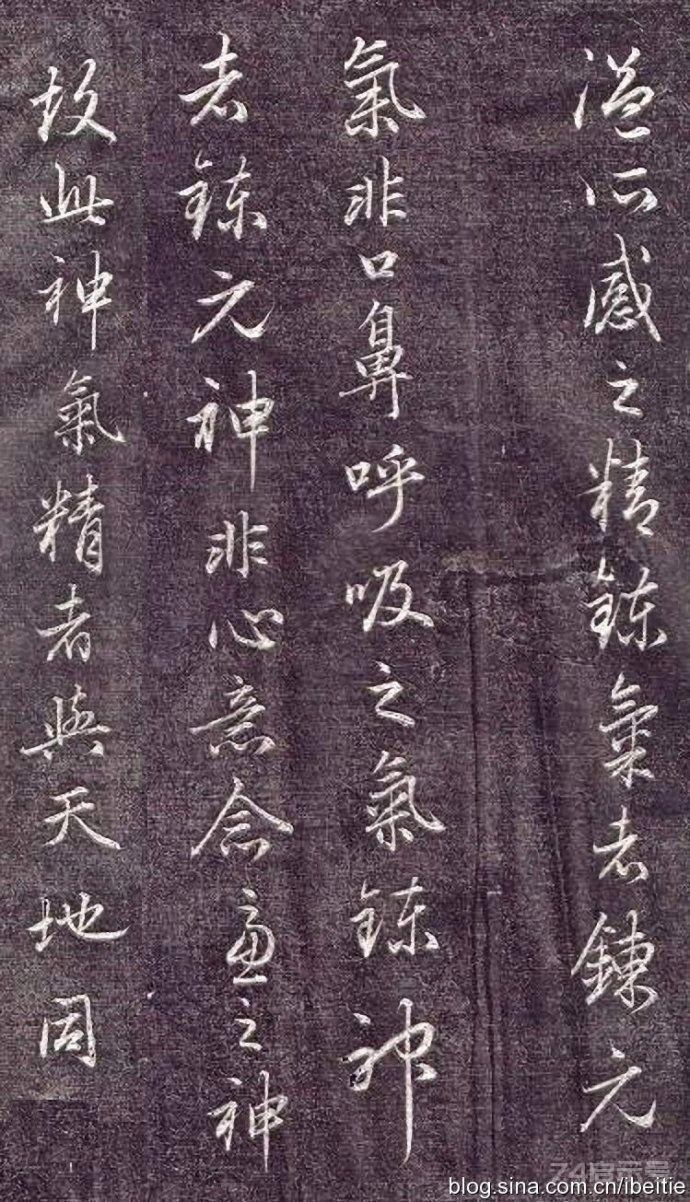 溢所感之精鍊氣者鍊元
氣非口鼻呼吸之氣鍊神
者鍊元神非心意念慮之神
故此神氣精者與天地同
blog.sina.com.cn/ibeitie